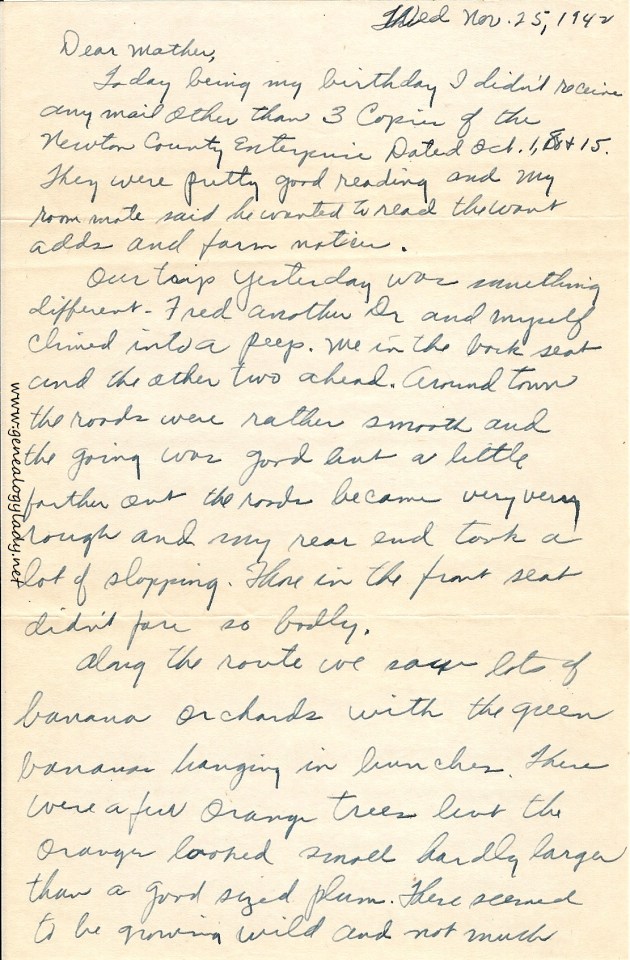 Wed Nov. 25, 1942
Dear Mother,
Today being my birthday I didn't receive
any mail other than 3 Copies of the
Newton County Enterprise Dated Oct. 1, 8 + 15.
They were pretty good reading and my
room mate said he wanted to read the want
adds and farm notices.
Our trip yesterday was something
different - Fred another Dr and myself
climed into a peep. Me in the back seat
and the other two ahead. Around town
the roads were rather smooth and
the going was good but a little
farther out the roads became very very
rough and my rear end took a
lot of slopping. Those in the front seat
didn't fare so badly.
Along the route we saw lots of
banana orchards with the green
bananas hanging in bunches. There
were a few orange trees but the
oranges looked small hardly larger
than a good sized plum. These seemed
to be growing wild and not much
www.genealogylady.net